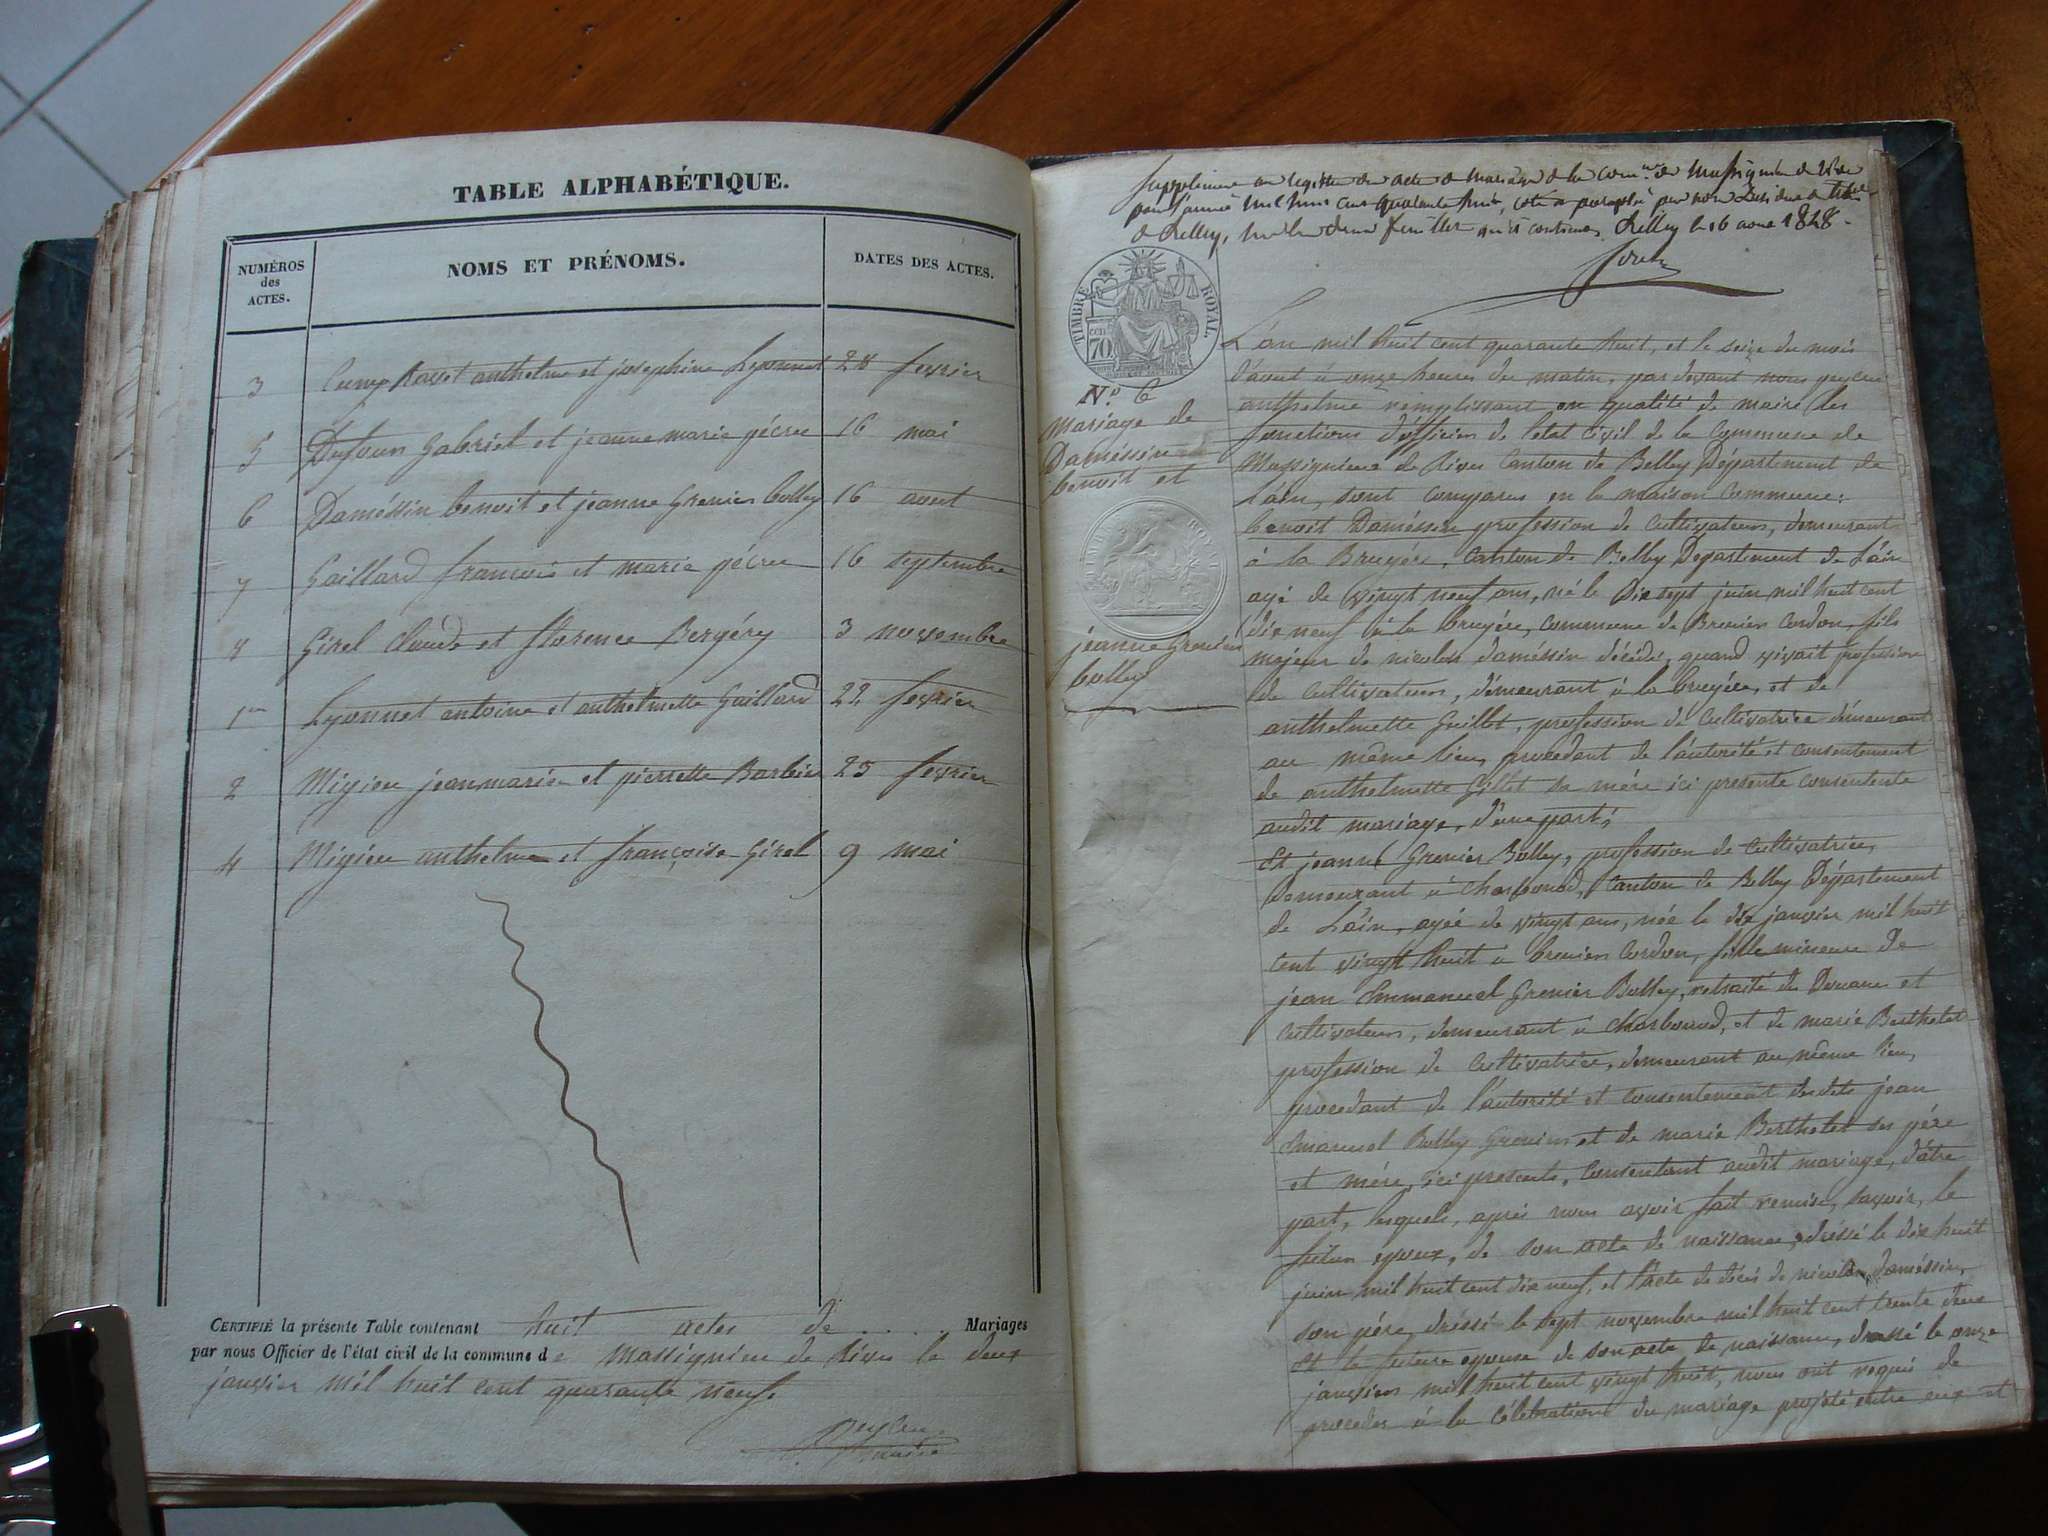 TABLE ALPHABÉTIQUE.
NUMÉROS des ACTES.
NOMS ET PRÉNOMS.
DATES DES ACTES.
3 Rosset anthelme et josephine 28 fevrier
5 Dufour Gabriel et jeanne marie pécru 16 mai
6 Daméssin benoit et jeanne Grenier bolley 16 aout
7 Gaillard francois et marie pécru 16 septembre
8 Girel Claude et florence Bergéry 3 novembre
1er Lyonnet antoine et anthelmette Gaillard 22 fevrier
2 Migieu jeanmarie et pierrette Barbier 25 fevrier
4 Migieu anthelme et françoise Girel 9 mai
CERTIFIÉ la présente Table contenant huit actes de Mariages
par nous Officier de l'état civil de la commune de massignieu de Rives le deux
janvier mil huit cent quarante neuf
Supplément au registre des actes de mariage de la comne de Massignieu de Rives
pour l'année mil huit cent quarante huit, coté et paraphé par nous Président du
de Belley, Belley le 16 aout 1848.
TIMBRE ROYAL
70
N.º 6
Mariage de
Daméssin
benoit et
jeanne Grenier
bolley
L'an mil huit cent quarante huit, et le seize du mois
d'aout à onze heures du matin, par devant nous
anthelme remplissant en qualité de maire les
fonctions d'officier de l'état civil de la Commune de
Massignieu de Rives Canton de Belley Département de
L'ain, sont comparus en la maison Commune:
benoit Daméssin profession de Cultivateur, demeurant
à la Bruyére, Canton de Belley Département de L'ain
agé de vingt neuf ans, né le Dix sept juin mil huit cent
dix neuf à la bruyére, commune de Brenier Cordon, fils
majeur de nicolas daméssin décédé, quand vivait profession
de Cultivateur, démeurant à la bruyére, et de
anthelmette Guillot, profession de Cultivatrice démeurant
au même lieu, procedant de l'autorité et consentement
de anthelmette Gillet sa mére ici presente consentente
audit mariage, d'une part;
Et jeanne Grenier Bolley, profession de Cultivatrice,
Demeurant à Charbonod, Canton de Belley Département
de L'ain, agée de vingt ans, née le dix janvier mil huit
cent vingt huit à brenier Cordon, fille mineure de
jean Emmanuel Grenier Bolley, retraité des Douanes et
Cultivateur, demeurant à Charbonod, et de marie Berthelet
profession de Cultivatrice, demeurant au même lieu,
procedant de l'autorité et consentement desdits jean
Emanuel Bolley Grenier et de marie Berthelet ses pére
et mére, ici presents, Consentant audit mariage, d'atre
part, lesquels, aprés nous avoir fait remise, savoir, le
futur epoux, de son acte de naissance dréssé le dix huit
juin mil huit cent dix neuf, et l'acte de décés de nicolas daméssin,
son pére, dréssé le sept novembre mil huit cent trente deux
Et la future epouse de son acte de naissance, dressé le onze
janvier mil huit cent vingt huit, nous ont requis de
proceder à la Célébration du mariage projété entre eux et